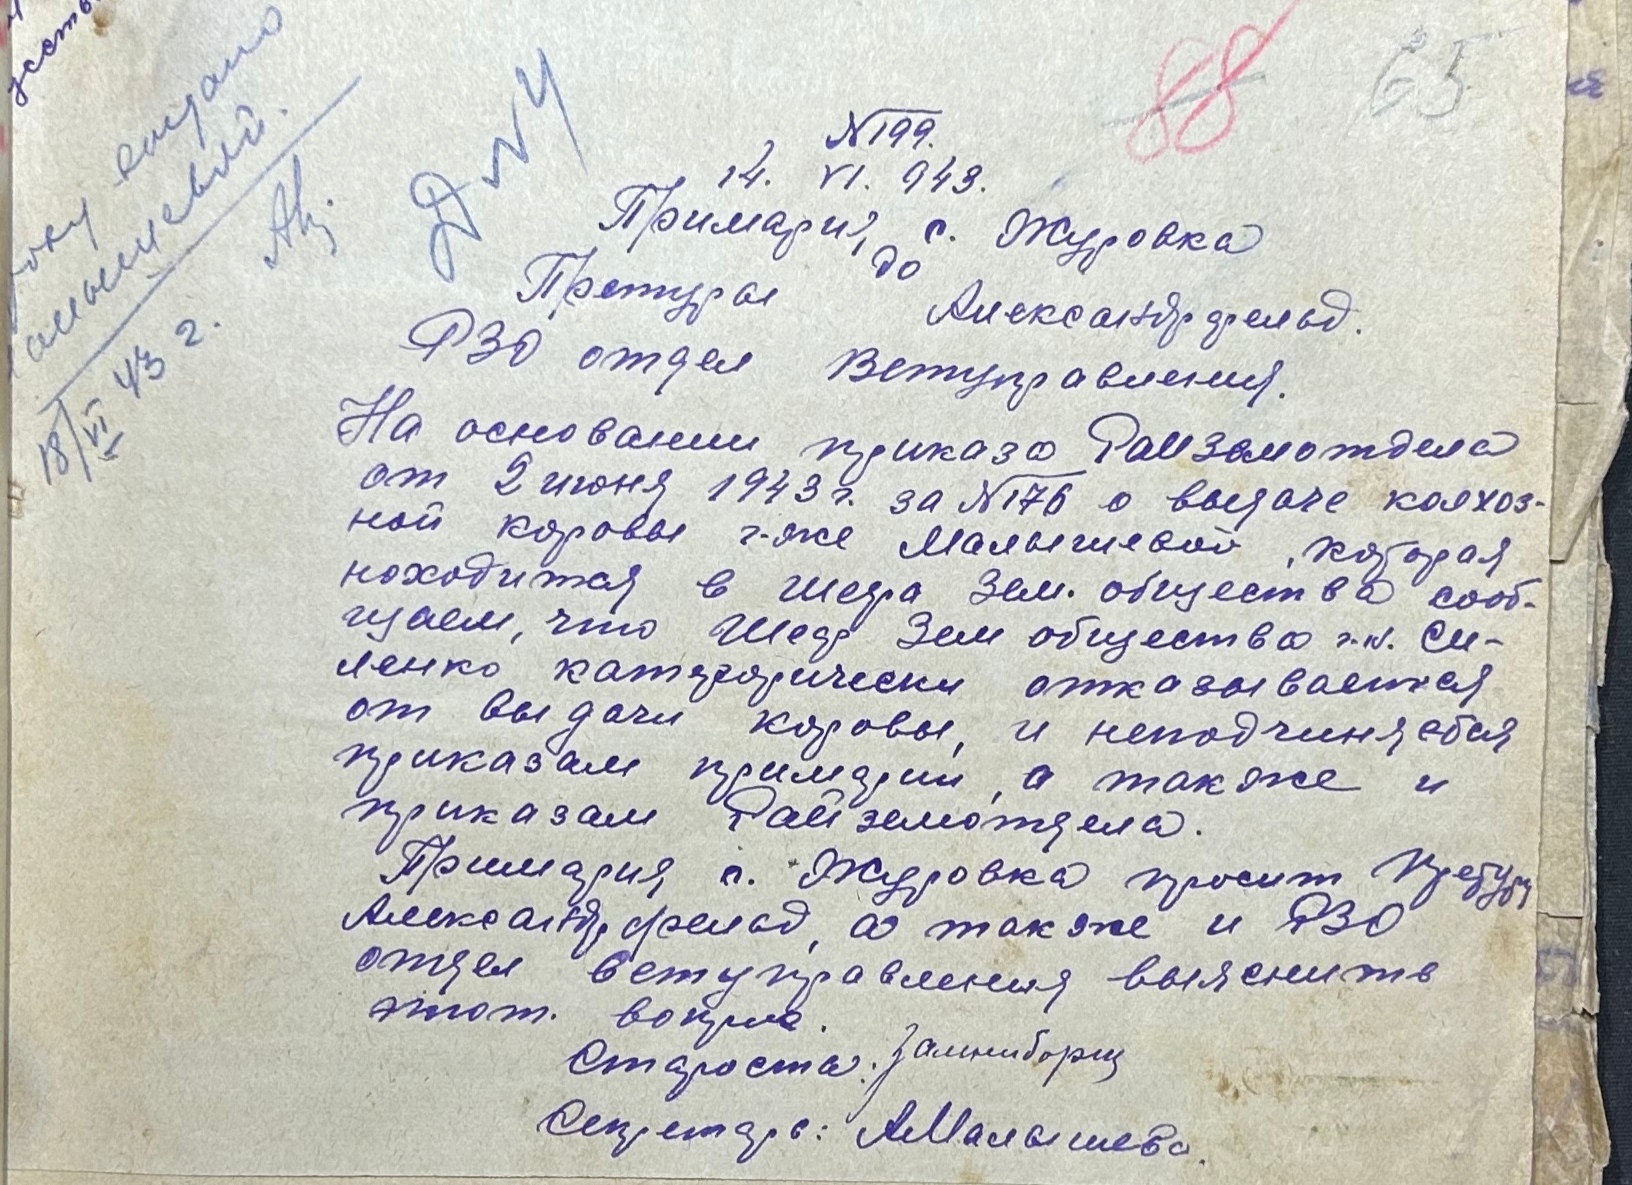 88
65
№ 199.
14. VI. 943.
Примария с. Журовка
до
Претуры Александрфельд.
РЗО отдел Ветуправления.
На основании приказа Райземотдела
от 2 июня 1943 г. за № 176 о выдаче колхоз-
ной коровы г-же Малышевой, которая
находится в шефа Зем. общества сооб-
щаем, что Шеф Зем общества г.н. Си-
ленко категорически отказывается
от выдачи коровы, и неподчиняется
приказам примарии, а также и
приказам Райземотдела.
Примария с. Журовка просит Претуру
Александрфельд, а также и РЗО
отдел Ветуправления выяснить
этот. вопрос.
Староста:
Секретарь: АМалышева.
выдано
Малышевой.
18/VI 43 г.